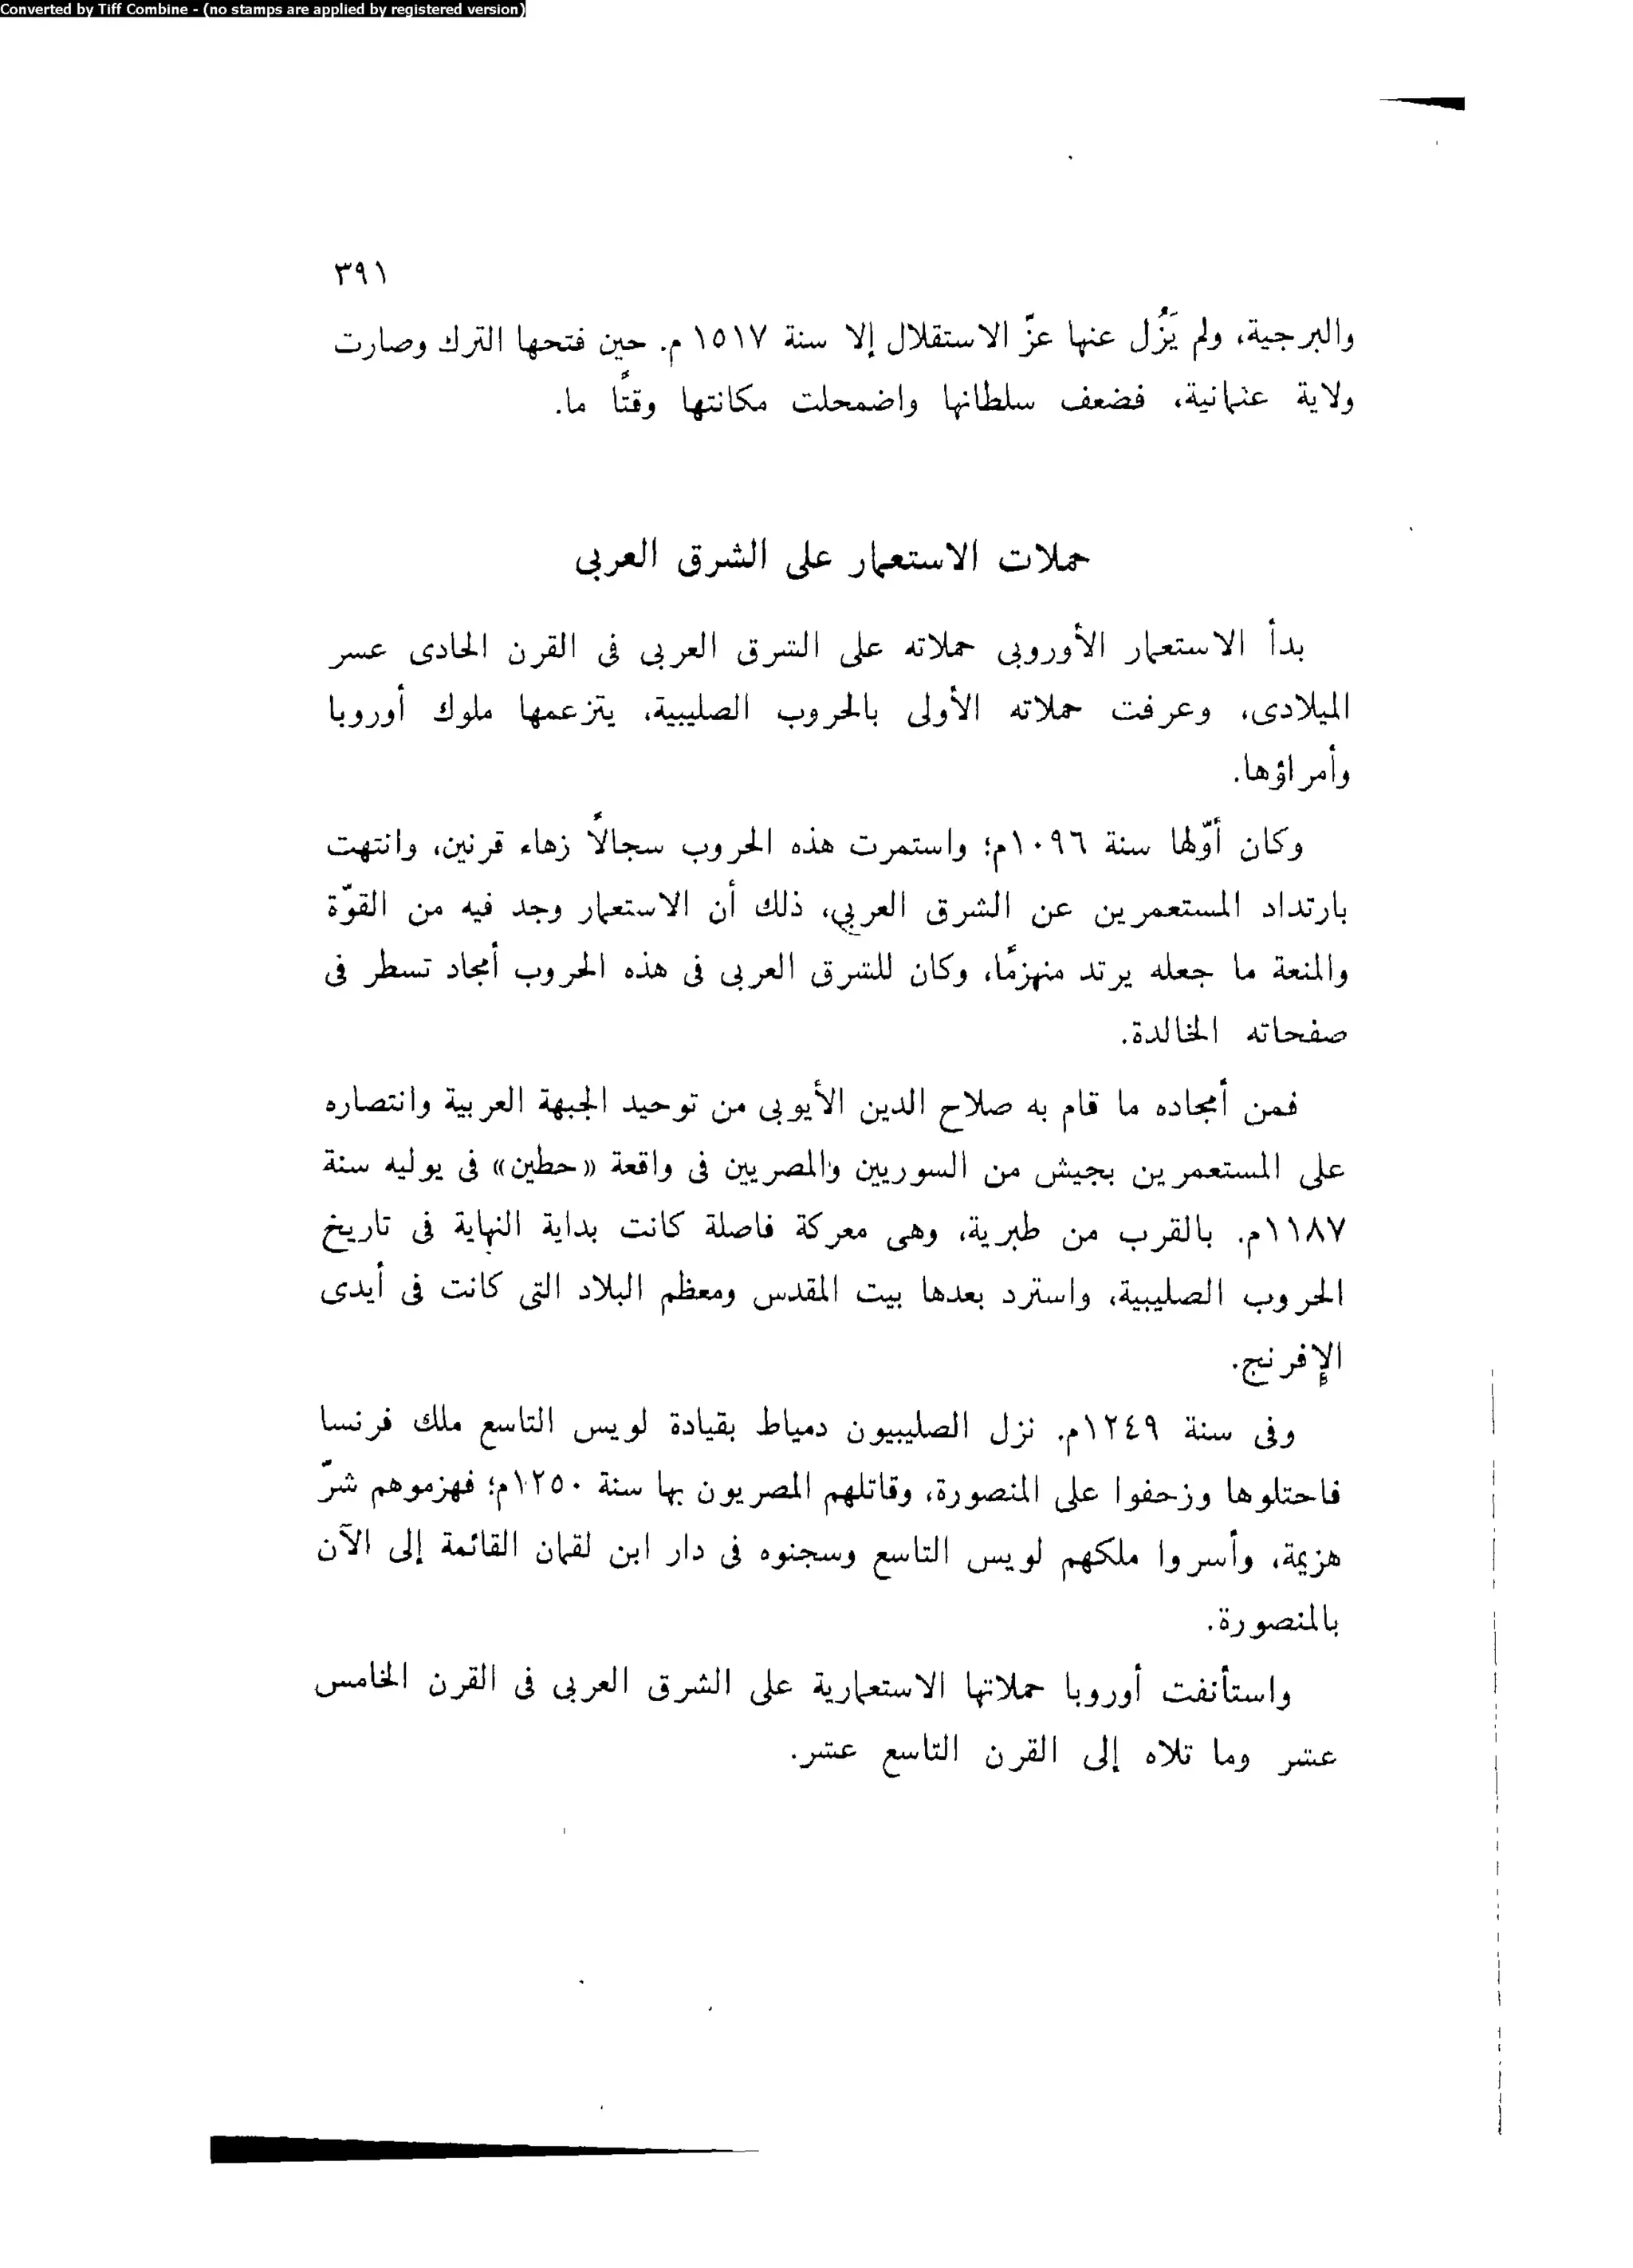 Converted by Tiff Combine - (no stamps are applied by registered version)
٣٩١
والبرجية، ولم يَزُل عنها عزّ الاستقلال إلا سنة ١٥١٧ م. حين فتحها الترك وصارت
ولاية عثمانية، فضعف سلطانها واضمحلت مكانتها وقتًا ما.
حملات الاستعمار على الشرق العربى
بدأ الاستعمار الأوروبى حملاته على الشرق العربى فى القرن الحادى عشر
الميلادى، وعرفت حملاته الأولى بالحروب الصليبية، يتزعمها ملوك أوروبا
وأمراؤها.
وكان أوّلها سنة ١٠٩٦م؛ واستمرت هذه الحروب سجالاً زهاء قرنين، وانتهت
بارتداد المستعمرين عن الشرق العربي، ذلك أن الاستعمار وجد فيه من القوّة
والمنعة ما جعله يرتد منهزمًا، وكان للشرق العربى فى هذه الحروب أمجاد تسطر فى
صفحاته الخالدة.
فمن أمجاده ما قام به صلاح الدين الأيوبى من توحيد الجبهة العربية وانتصاره
على المستعمرين بجيش من السوريين والمصريين فى واقعة «حطين» فى يوليه سنة
١١٨٧م. بالقرب من طبرية، وهى معركة فاصلة كانت بداية النهاية فى تاريخ
الحروب الصليبية، واسترد بعدها بيت المقدس ومعظم البلاد التى كانت فى أيدى
الإفرنج.
وفى سنة ١٢٤٩م. نزل الصليبيون دمياط بقيادة لويس التاسع ملك فرنسا
فاحتلوها وزحفوا على المنصورة، وقاتلهم المصريون بها سنة ١٢٥٠م؛ فهزموهم شرّ
هزيمة، وأسروا ملكهم لويس التاسع وسجنوه فى دار ابن لقمان القائمة إلى الآن
بالمنصورة.
واستأنفت أوروبا حملاتها الاستعمارية على الشرق العربى فى القرن الخامس
عشر وما تلاه إلى القرن التاسع عشر.